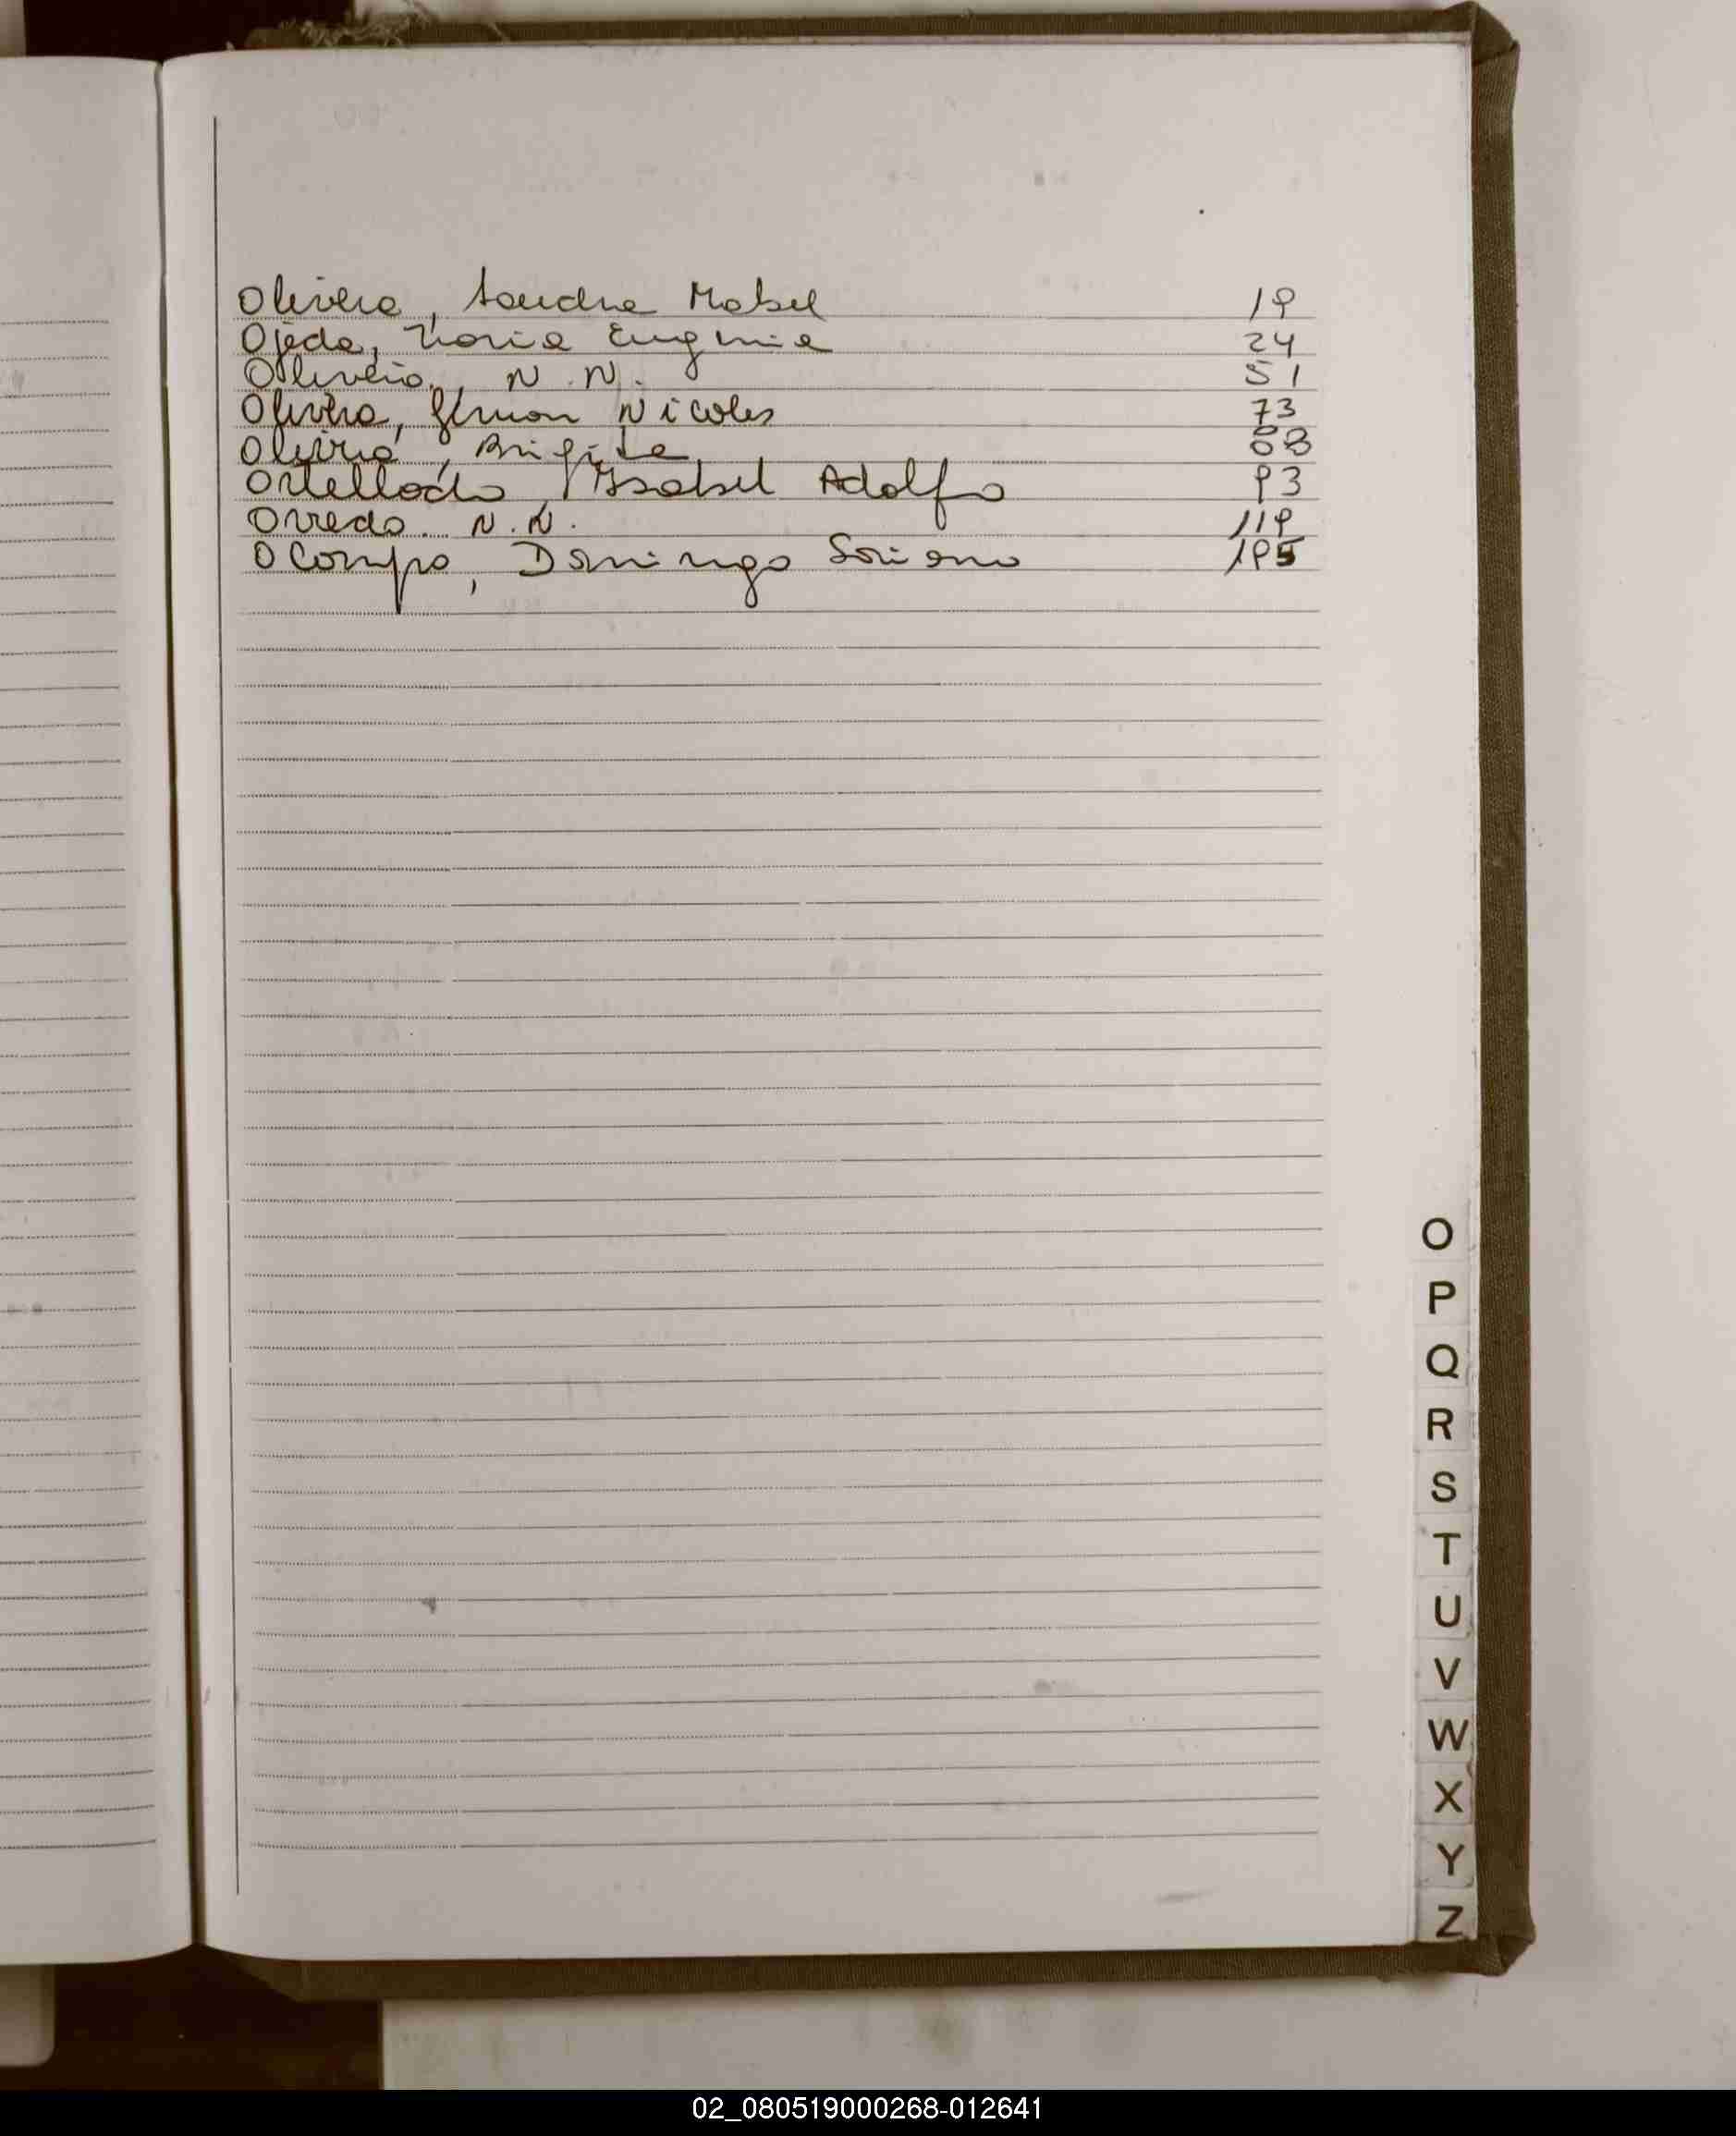 Olivera, Sandra Mabel 19
Ojeda, Maria Eugenia 24
Oliveira, N.N. 51
Olivera, German Nicolas 73
Olivera, Brigita 88
Ortellado, Isabel Adolfo 93
Orredo N.N. 119
Ocampo, Domingo Soriano 195
O
P
Q
R
S
T
U
V
W
X
Y
Z
02_080519000268-012641